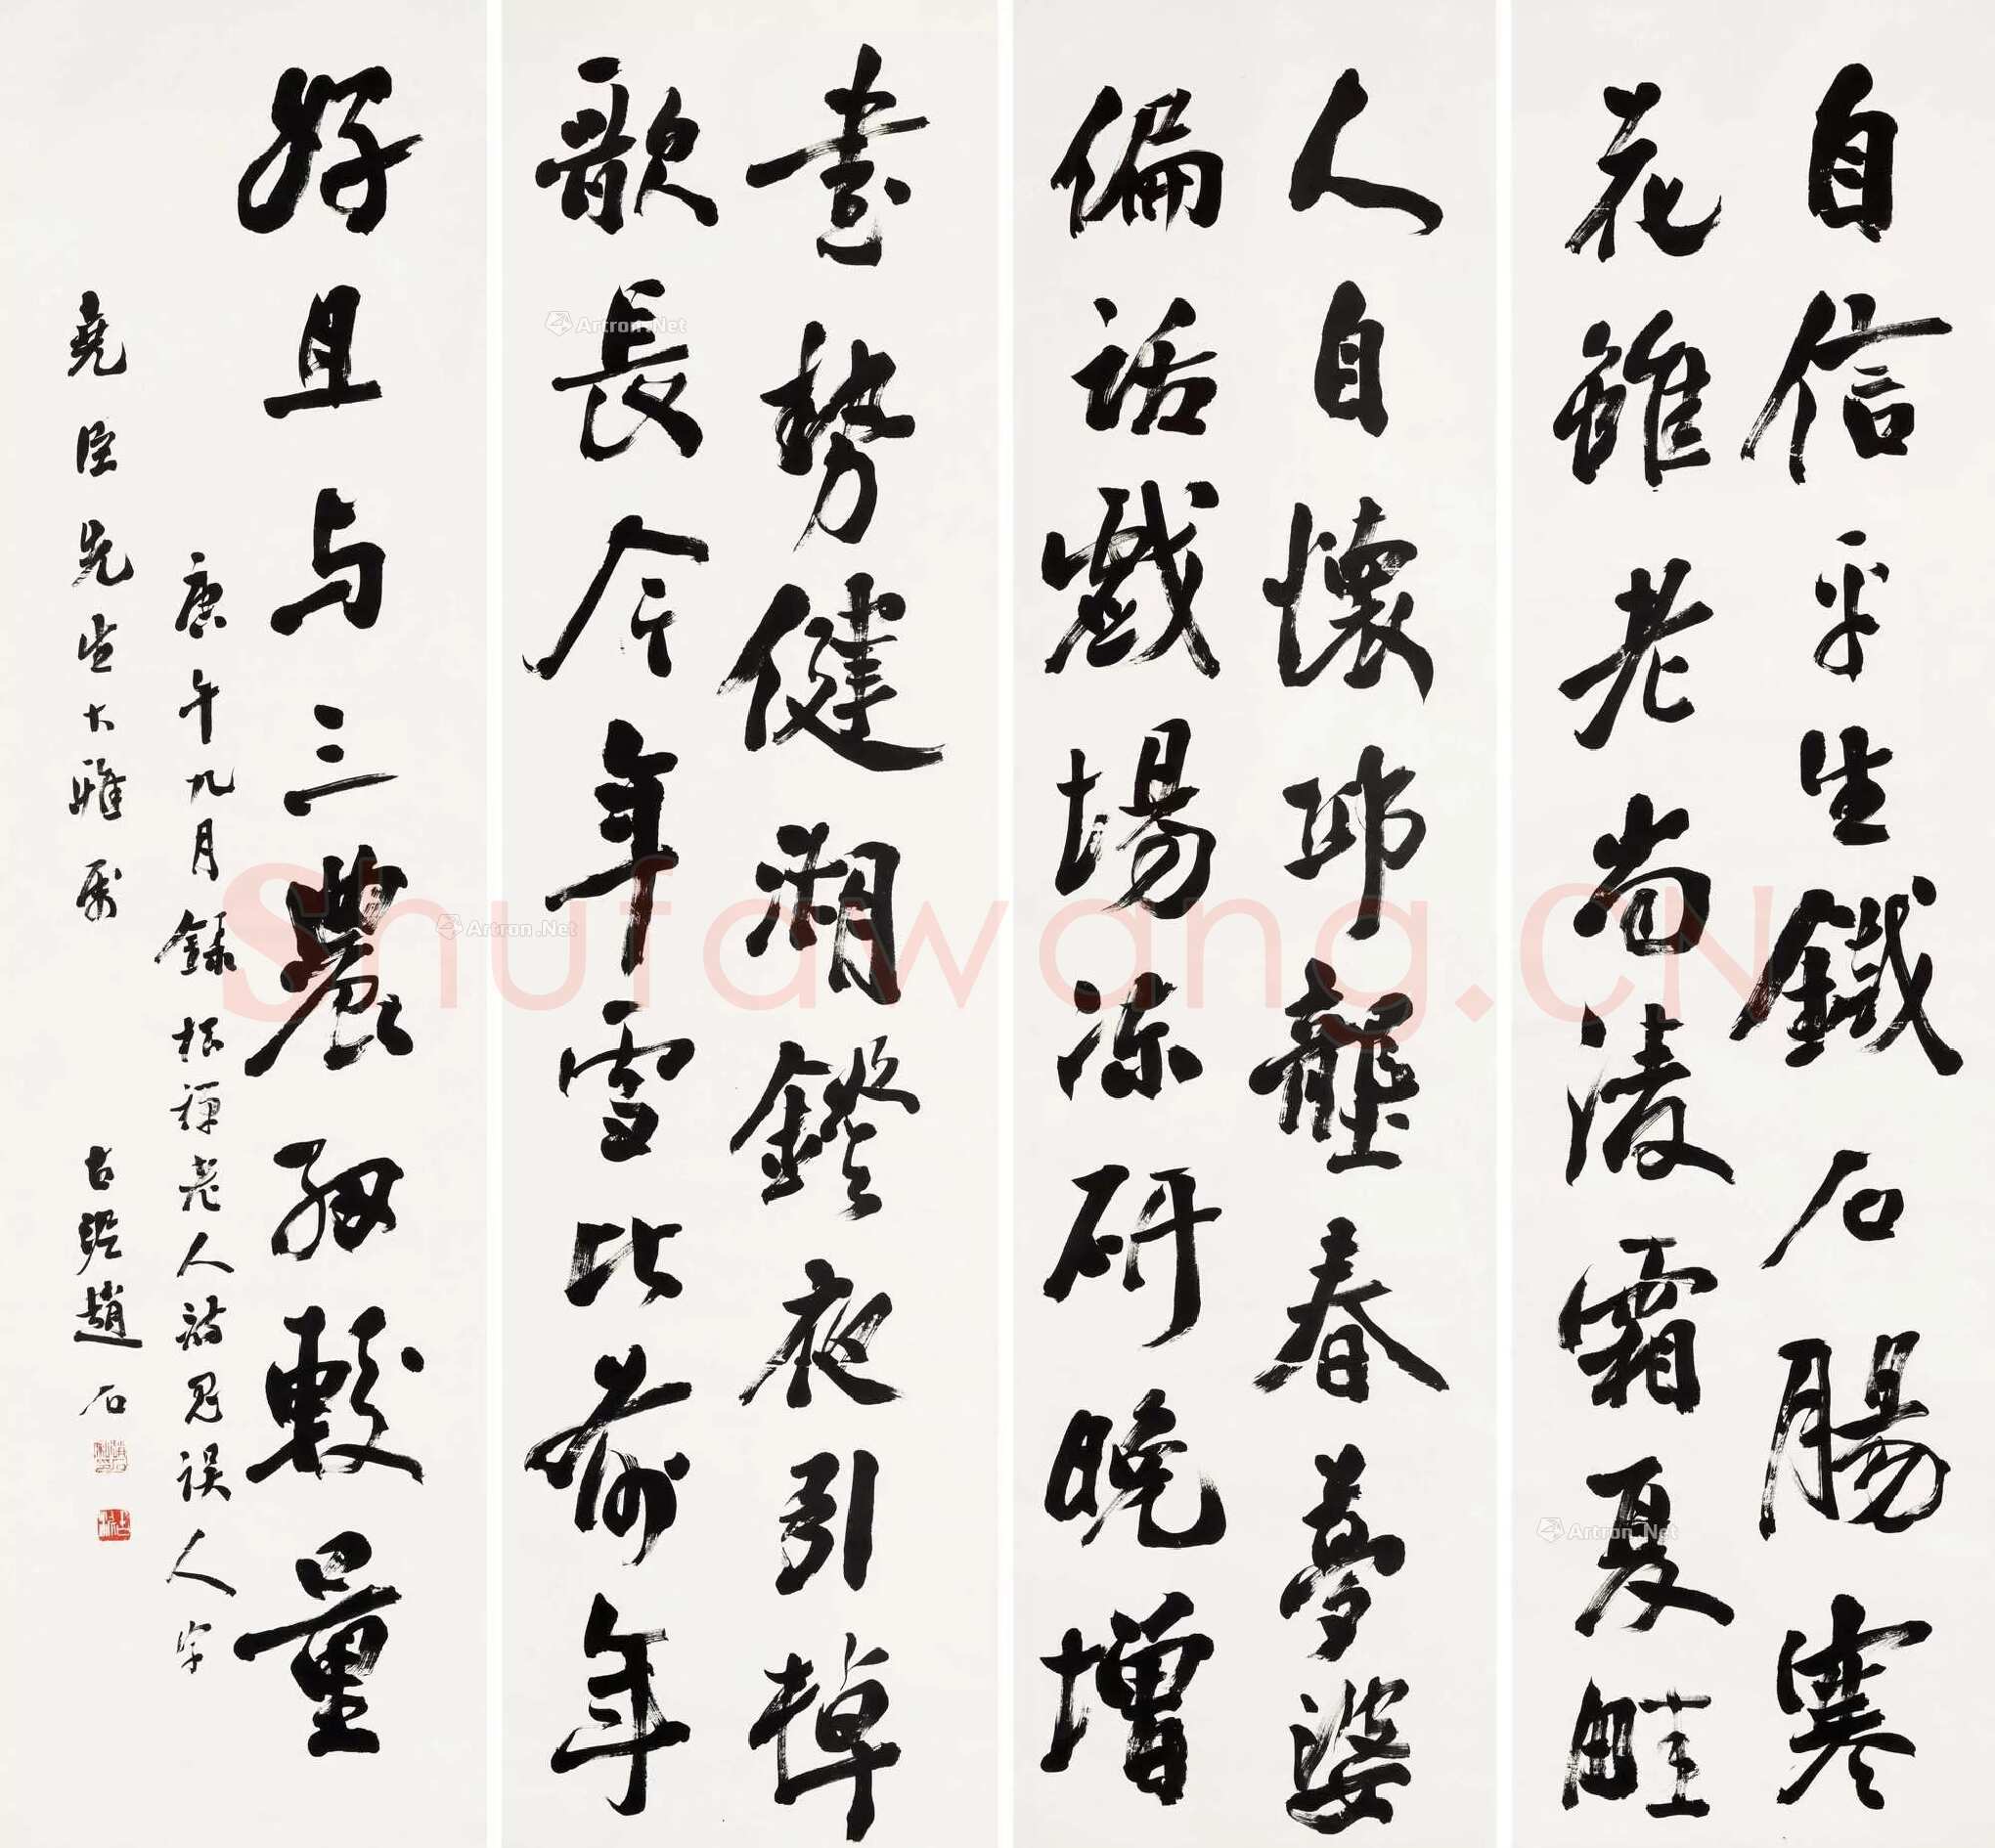 自信平生鐵石腸寒
花雖老尚淩霜夏畦
人自懷邛壟春夢婆
偏話戲場凍研晚增
書勢健湖鐙夜引棹
歌長今年雪比前年
好且与三農細較量
庚午九月錄松禪老人詩忍誤人字
堯臣先生大雅屬
古 趙石
Artron.Net
Artron.Net
Artron.Net
Shufawang.CN